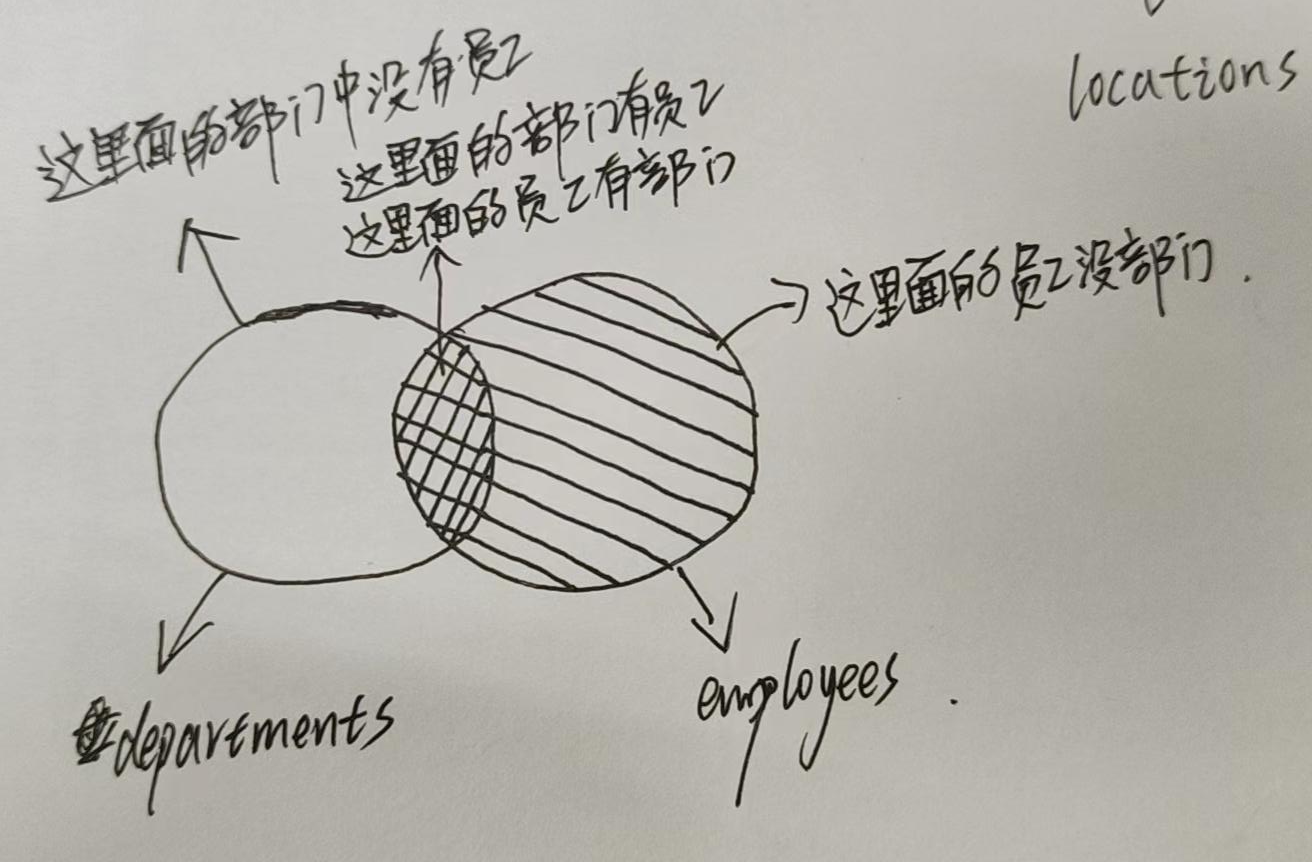 locations
这里面的部门中没有员工
这里面的部门有员工
这里面的员工有部门
这里面的员工没部门.
departments
employees.